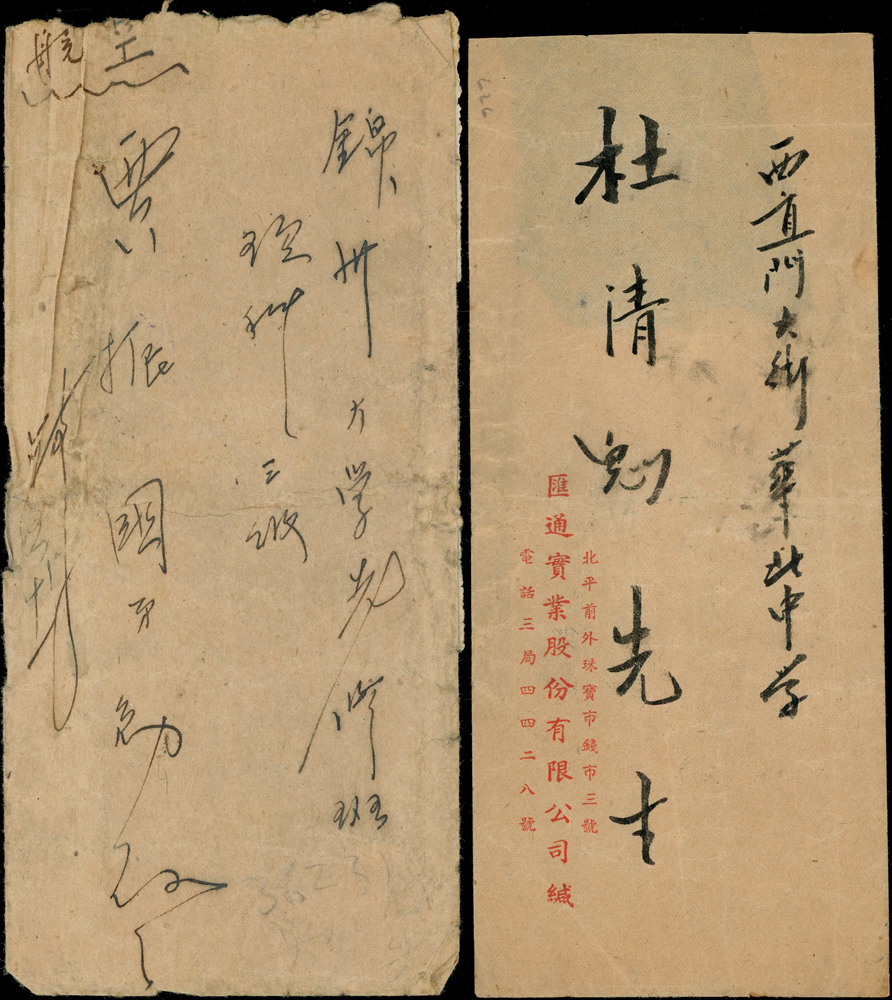 航空
錦州大学先修班
理科三級
賈振國
西直門大街華北中学
杜清先生
北平前外珠寶市錢市三號
匯通實業股份有限公司緘
電話三局四四二八號
626